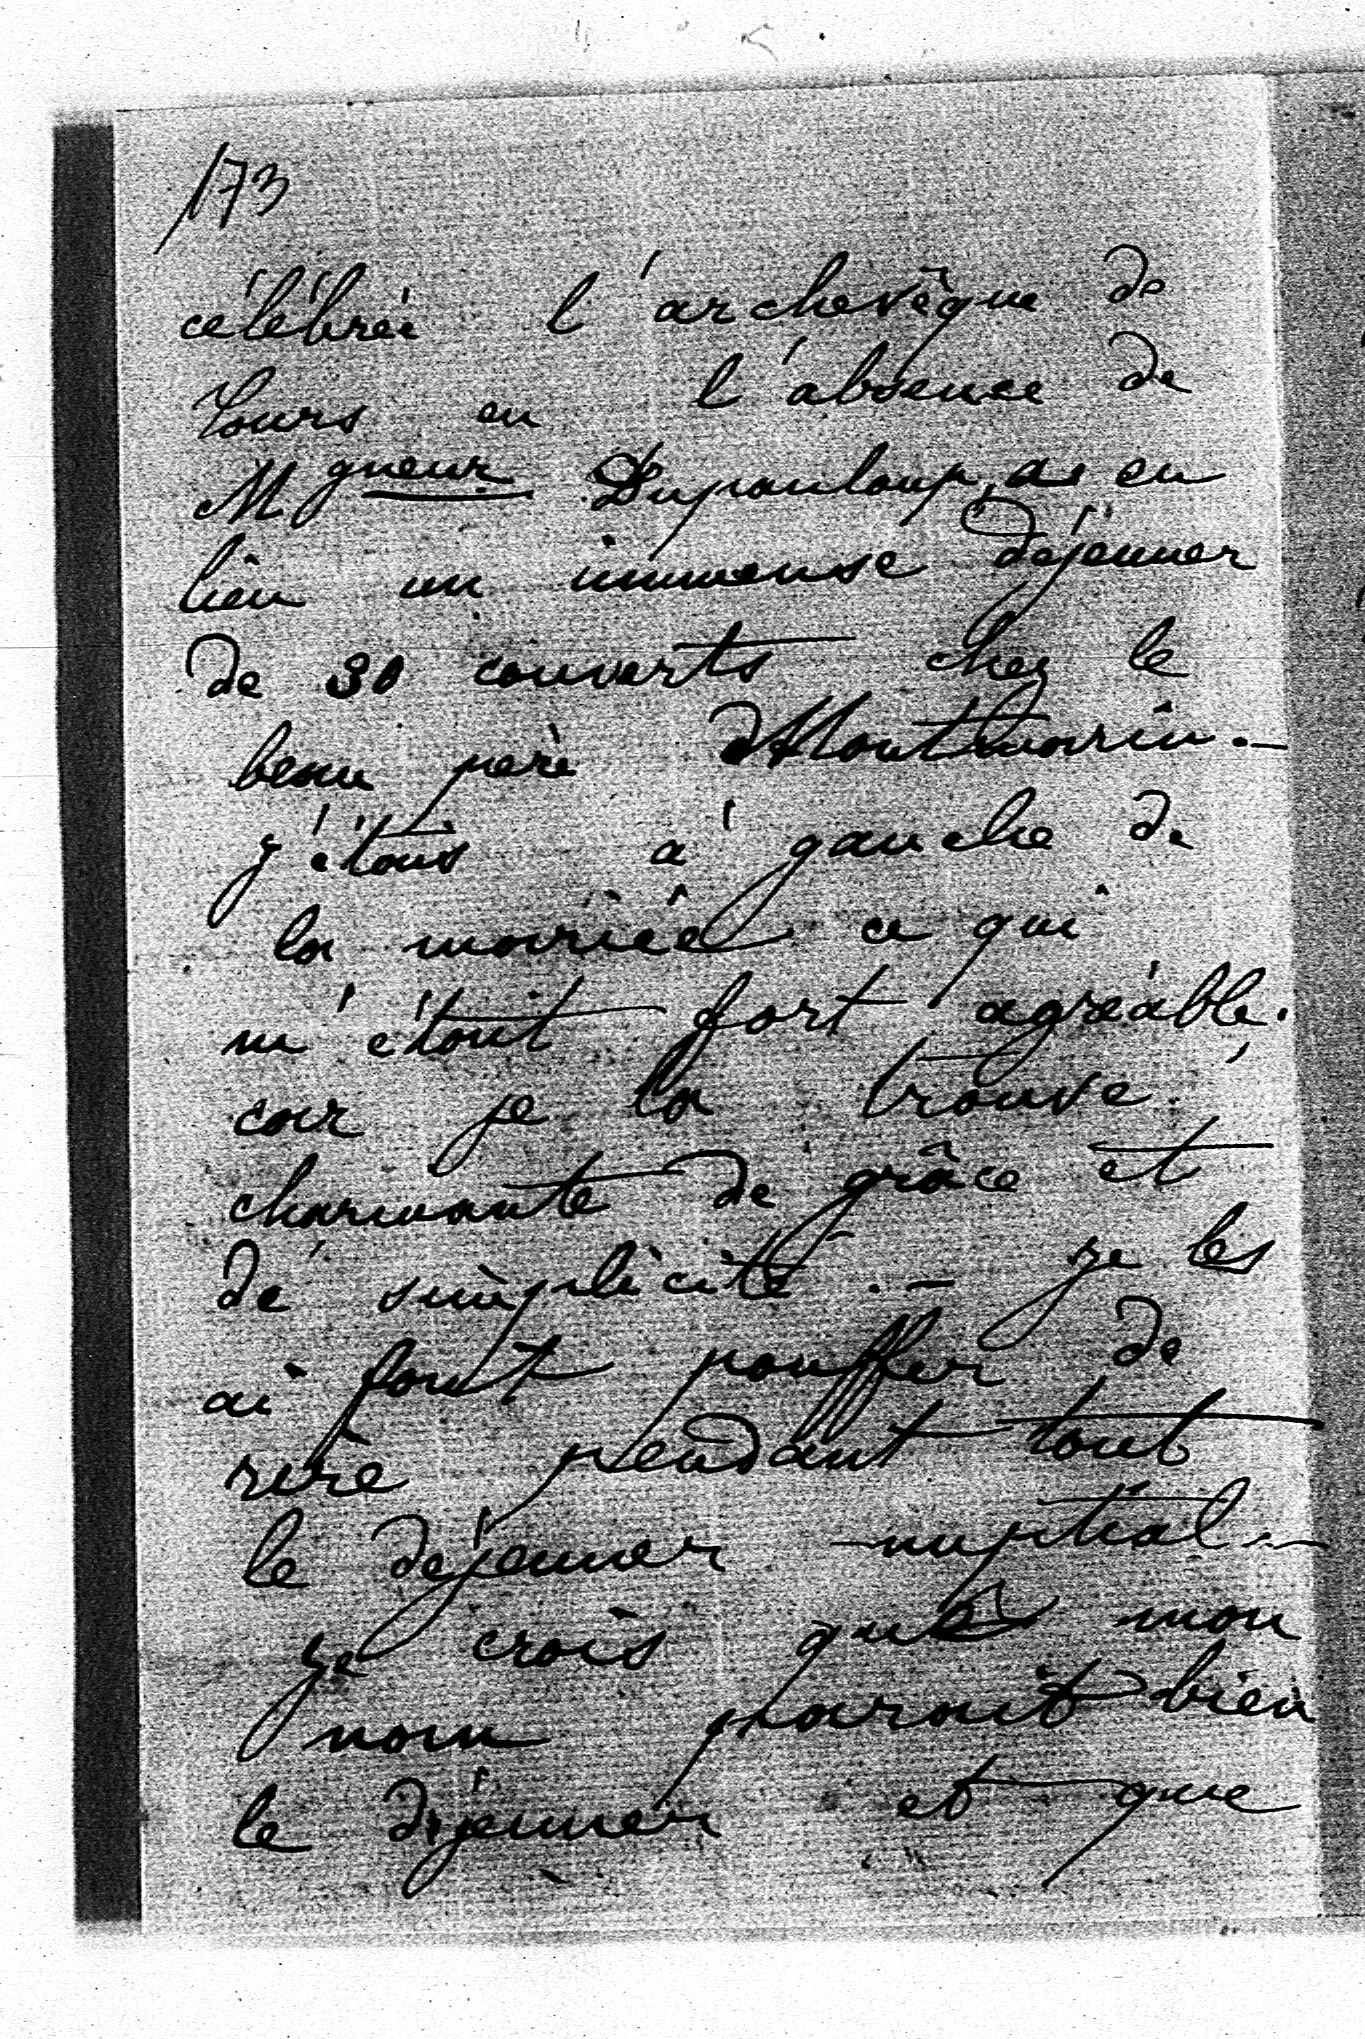 173
célébrée l'archevêque de
Tours en l'absence de
Mgneur Dupanloup, a eu
lieu un immense déjeuner
de 30 couverts chez le
beau père Montmarin. —
j'étais à gauche de
la mariée ce qui
m'était fort agréable.
car je la trouve
charmante de grâce et
de simplicité. — je les
ai fait pouffer de
rire pendant tout
le déjeuner nuptial. —
je crois que mon
nom parait bien
le déjeuner et que